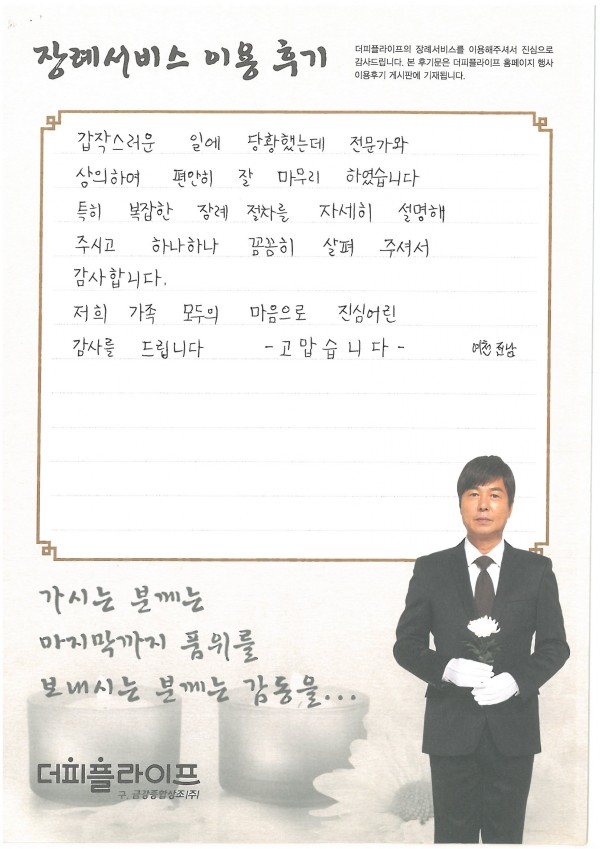 장례서비스 이용 후기
더피플라이프의 장례서비스를 이용해주셔서 진심으로
감사드립니다. 본 후기문은 더피플라이프 홈페이지 행사
이용후기 게시판에 기재됩니다.
갑작스러운 일에 당황했는데 전문가와
상의하여 편안히 잘 마무리 하였습니다
특히 복잡한 장례 절차를 자세히 설명해
주시고 하나하나 꼼꼼히 살펴 주셔서
감사합니다.
저희 가족 모두의 마음으로 진심어린
감사를 드립니다 - 고맙습니다 -
가시는 분께는
마지막까지 품위를
보내시는 분께는 감동을...
더피플라이프
구. 금강종합상조(주)